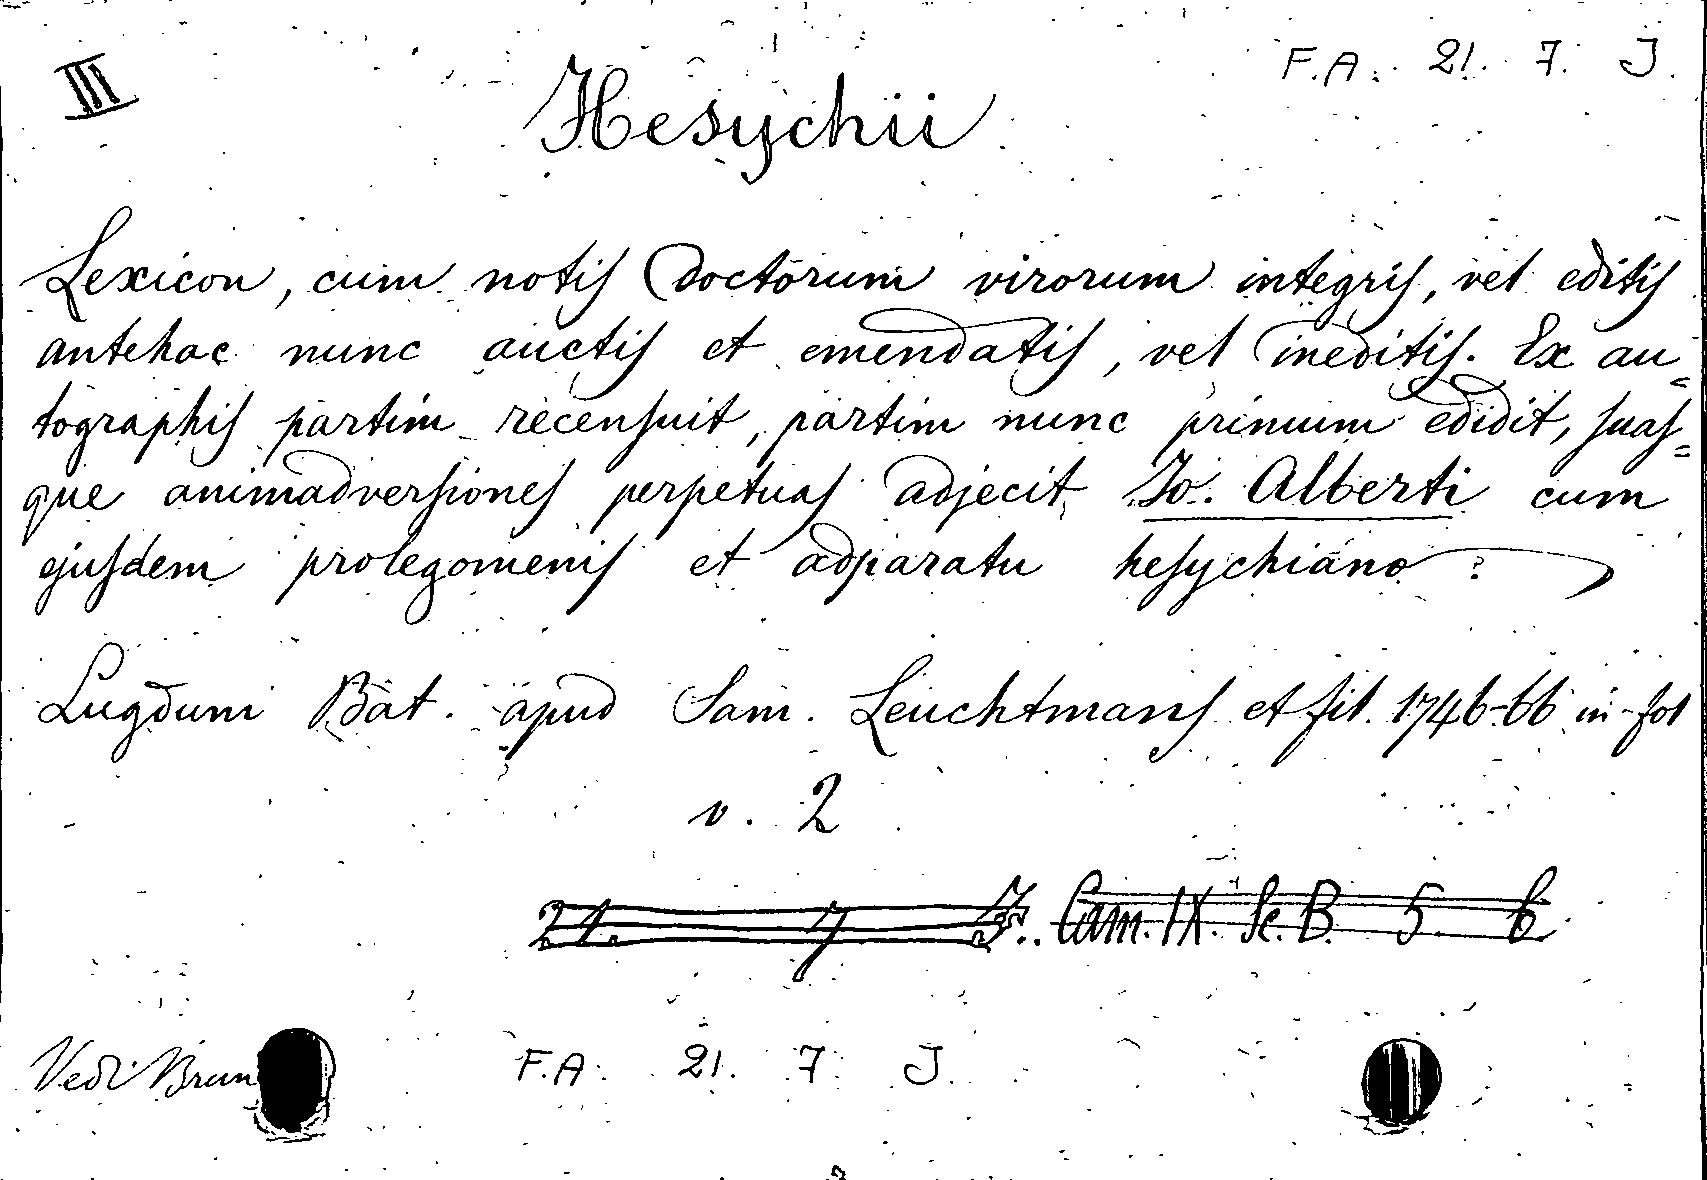 III
F.A. 21. 7. J.
Hesychii
Lexicon, cum notis doctorum virorum integris, vel editis
antehac nunc auctis et emendatis, vel ineditis. Ex au=
tographis partim recensuit, partim nunc primum edidit, suas=
que animadversiones perpetuas adjecit Jo. Alberti cum
ejusdem prolegomenis et adparatu hesychiano.
Lugduni Bat. apud Sam. Leuchtmans et fil. 1746-66 in-fol
v. 2
21. 7 Cam. IX. Sc. B. 5. 6
Vedi Brun
F.A. 21. 7. J.